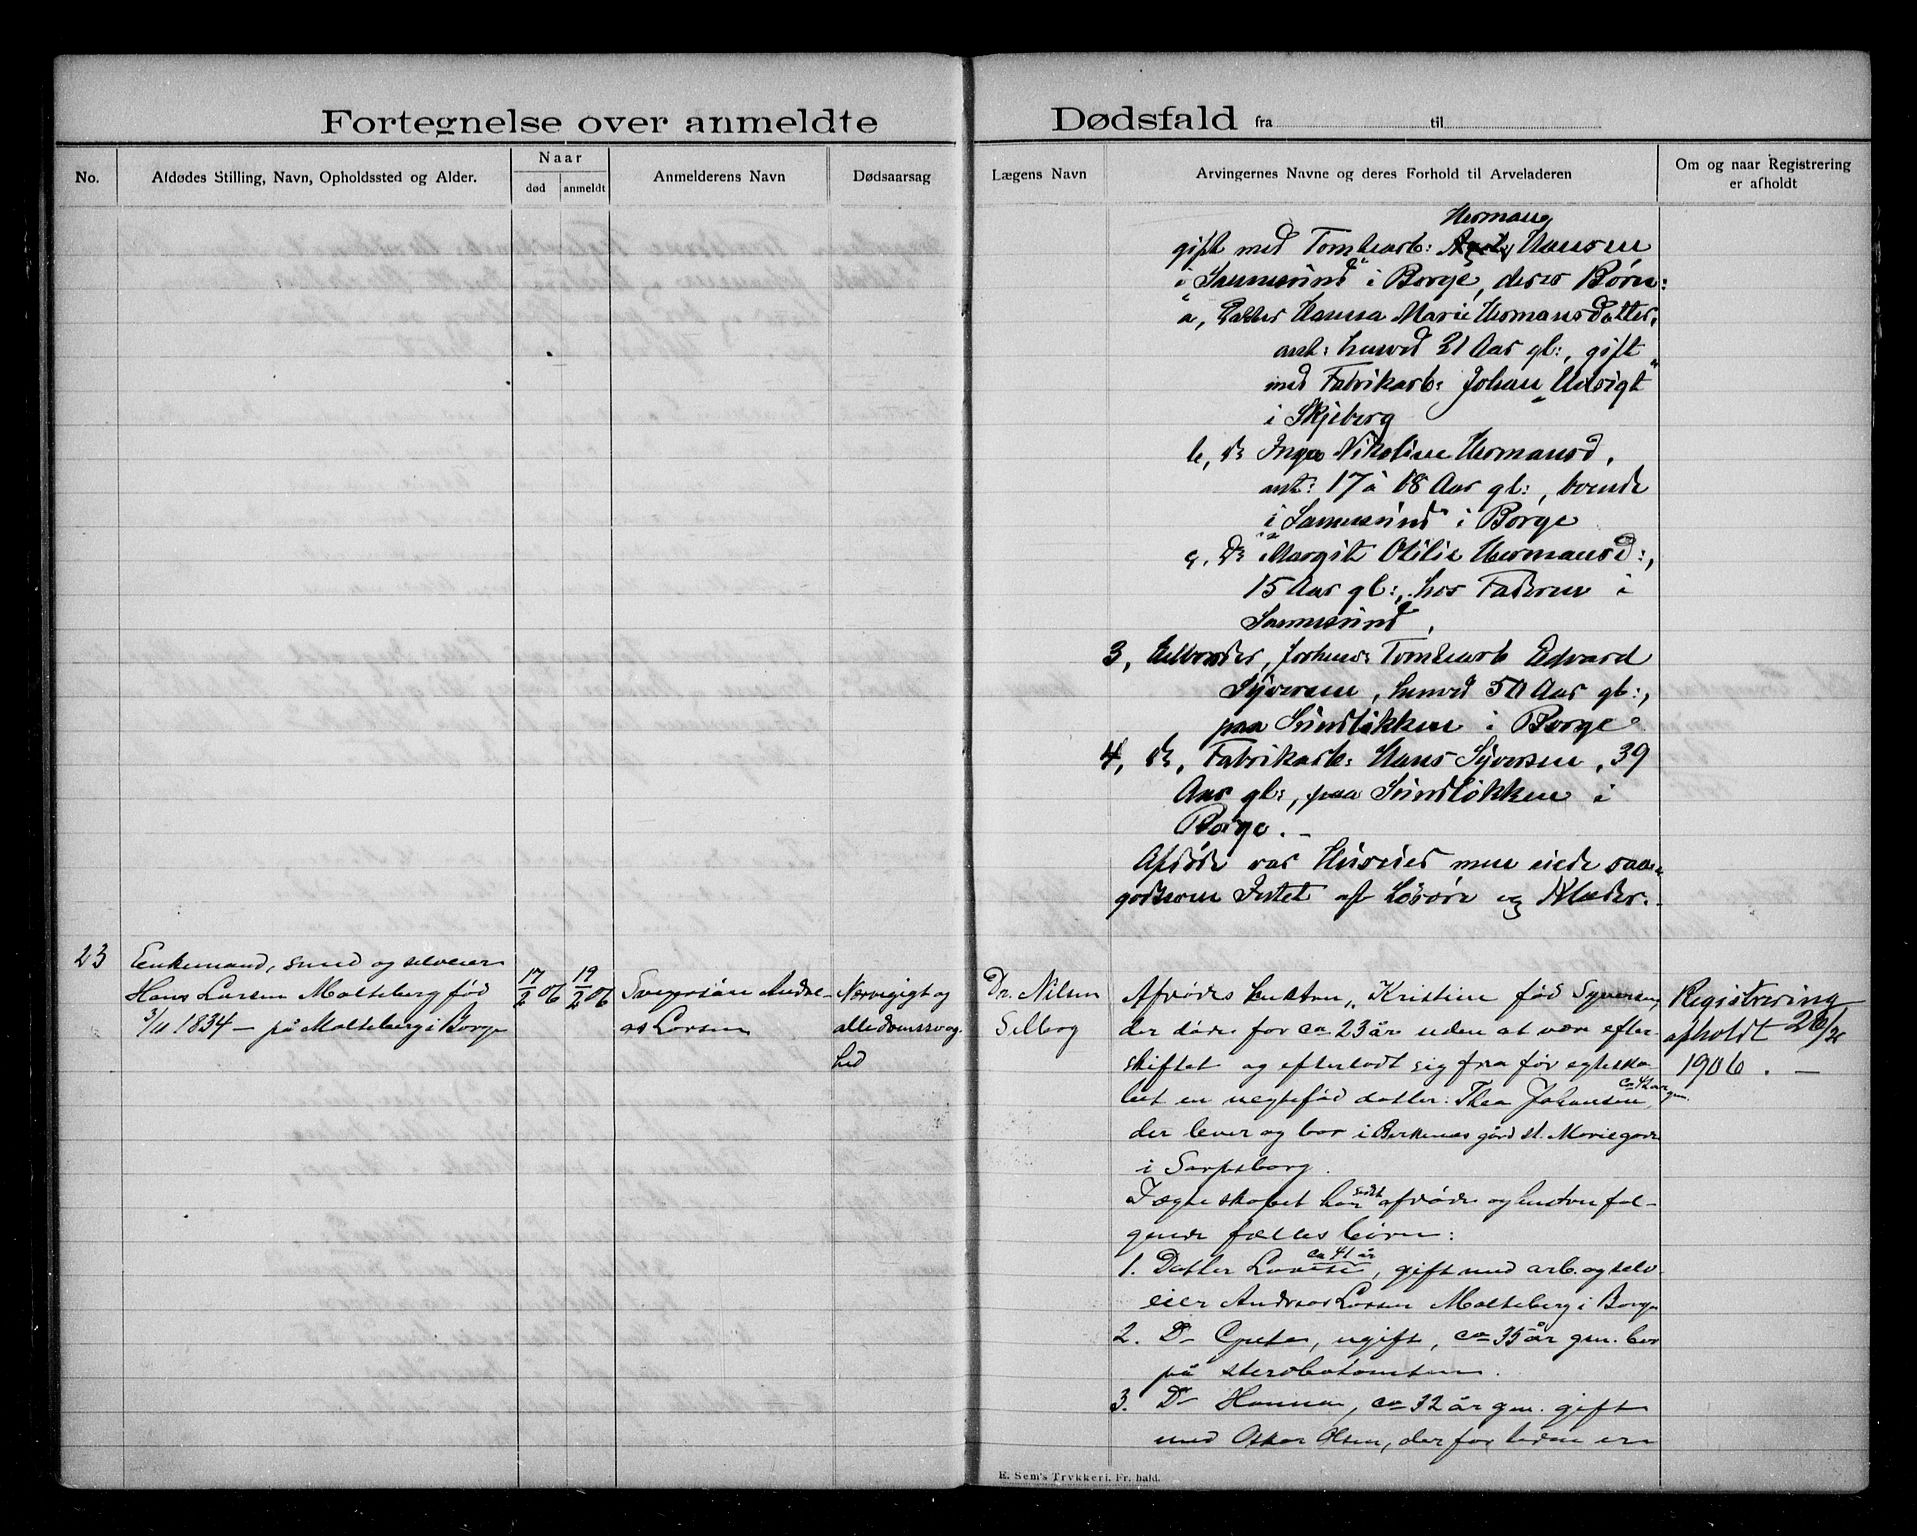 Fortegnelse over anmeldte Dødsfald fra til
No.
Afdødes Stilling, Navn, Opholdssted og Alder.
Naar
død
anmeldt
Anmelderens Navn
Dødsaarsag
Lægens Navn
Arvingernes Navne og deres Forhold til Arveladeren
Om og naar Registrering
er afholdt
Hermann
gift med Tomtearb: Hansen
i "Sannesund" i Borge, deres Børn:
a, Datter Hanna Marie Hermansdatter,
ant: henved 21 Aar gl:, gift
med Fabrikarb: Johan "Udsigt"
i Skjeberg
b, do Inga Nikoline Hermansd,
ant: 17 à 18 Aar gl:, boende
i "Sannesund" i Borge
c, do Margit Otilie Hermansd:,
15 Aar gl:, hos Faderen i
Sannesund,
3, Tomtearb Edvard
Syversen, henved 50 Aar gl:,
paa Svindløkken i Borge
4, do, Fabrikarb: Hans Syversen, 39
Aar gl:, paa Svindløkken i
Borge. -
Afdøde var Huseier men eiede saa-
godtsom Intet af Løsøre og Klæder.
23
Enkemand, smed og selveier
Hans Larsen Malteberg fød
3/11 1834 - på Malteberg i Borge
17/2 06
19/2 06
Svigersøn Andre-
as Larsen
Nervegigt og
alledomssvag-
hed
Dr. Nilsen
Selberg
Afdødes hustru, Kristine fød Syversen,
der døde for ca 23 år uden at være efter-
skiftet og efterlodt sig fra før egteska-
bet en uegtefød datter: Thea Johansen, ca 42 år gm.
der lever og bor i Berkenes gård st. Mariegade
i Sarpsborg.
I ægteskabet har afdøde og hustru føl-
gende fælles børn:
1. Datter Lovise ca 41 år, gift med arb. og selv-
eier Andreas Larsen Malteberg i Borge
2. Do Grete, ugift, ca 35 år gm. bor
på sterbotomten.
3. Do Hanna, ca 32 år gm. gift
med Oskar Olsen, der for tiden er
Registrering
afholdt
1906. -
E. Sem's Trykkeri. Fr.hald.